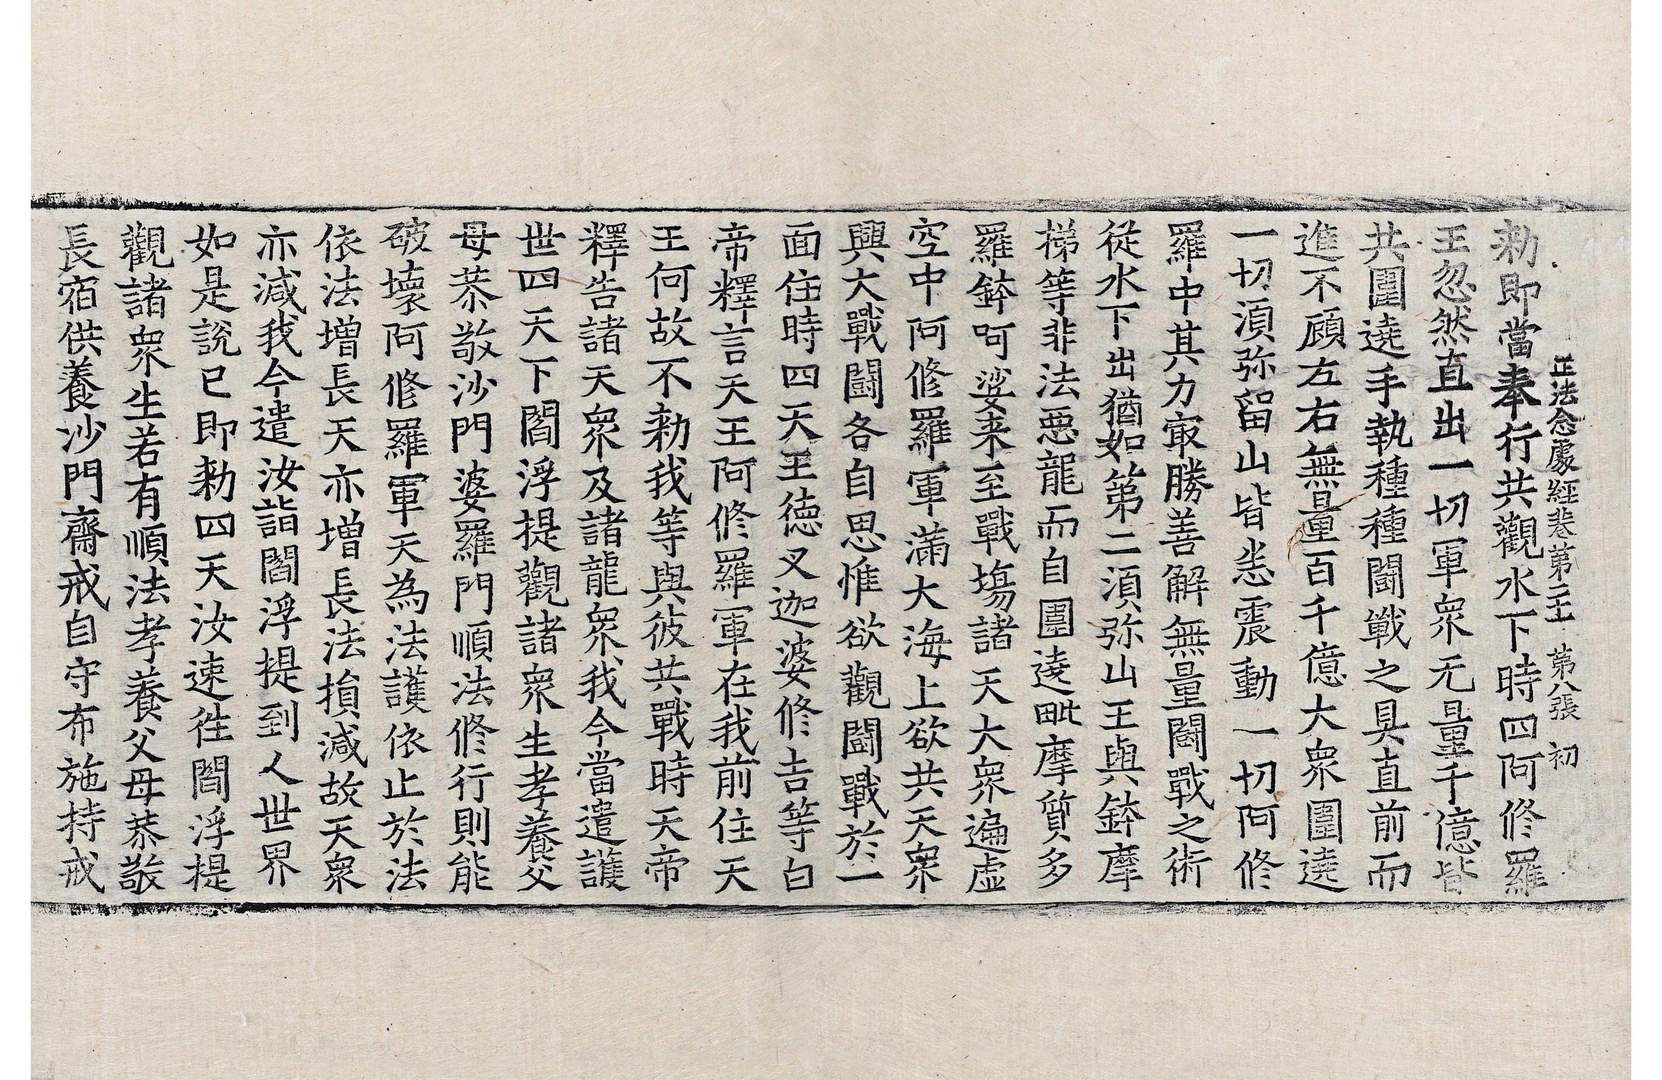 正法念處經卷第二十一 第八張 初
勑即當奉行共觀水下時四阿修羅
王忽然直出一切軍衆无量千億皆
共圍遶手執種種鬪戰之具直前而
進不顧左右無量百千億大衆圍遶
一切湏弥留山皆悉震動一切阿修
羅中其力㝡勝善解無量鬪戰之術
從水下出猶如第二湏弥山王與鉢摩
梯等非法惡龍而自圍遶毗摩質多
羅鉢呵娑来至戰場諸天大衆遍虛
空中阿修羅軍滿大海上欲共天衆
興大戰鬪各自思惟欲觀鬪戰於一
面住時四天王徳叉迦婆修吉等白
帝釋言天王阿修羅軍在我前住天
王何故不勑我等與彼共戰時天帝
釋告諸天衆及諸龍衆我今當遣護
世四天下閻浮提觀諸衆生孝養父
母恭敬沙門婆羅門順法修行則能
破壞阿修羅軍天為法護依止於法
依法增長天亦增長法損減故天衆
亦減我今遣汝詣閻浮提到人世界
如是說已即勑四天汝速往閻浮提
觀諸衆生若有順法孝養父母恭敬
長宿供養沙門齋戒自守布施持戒